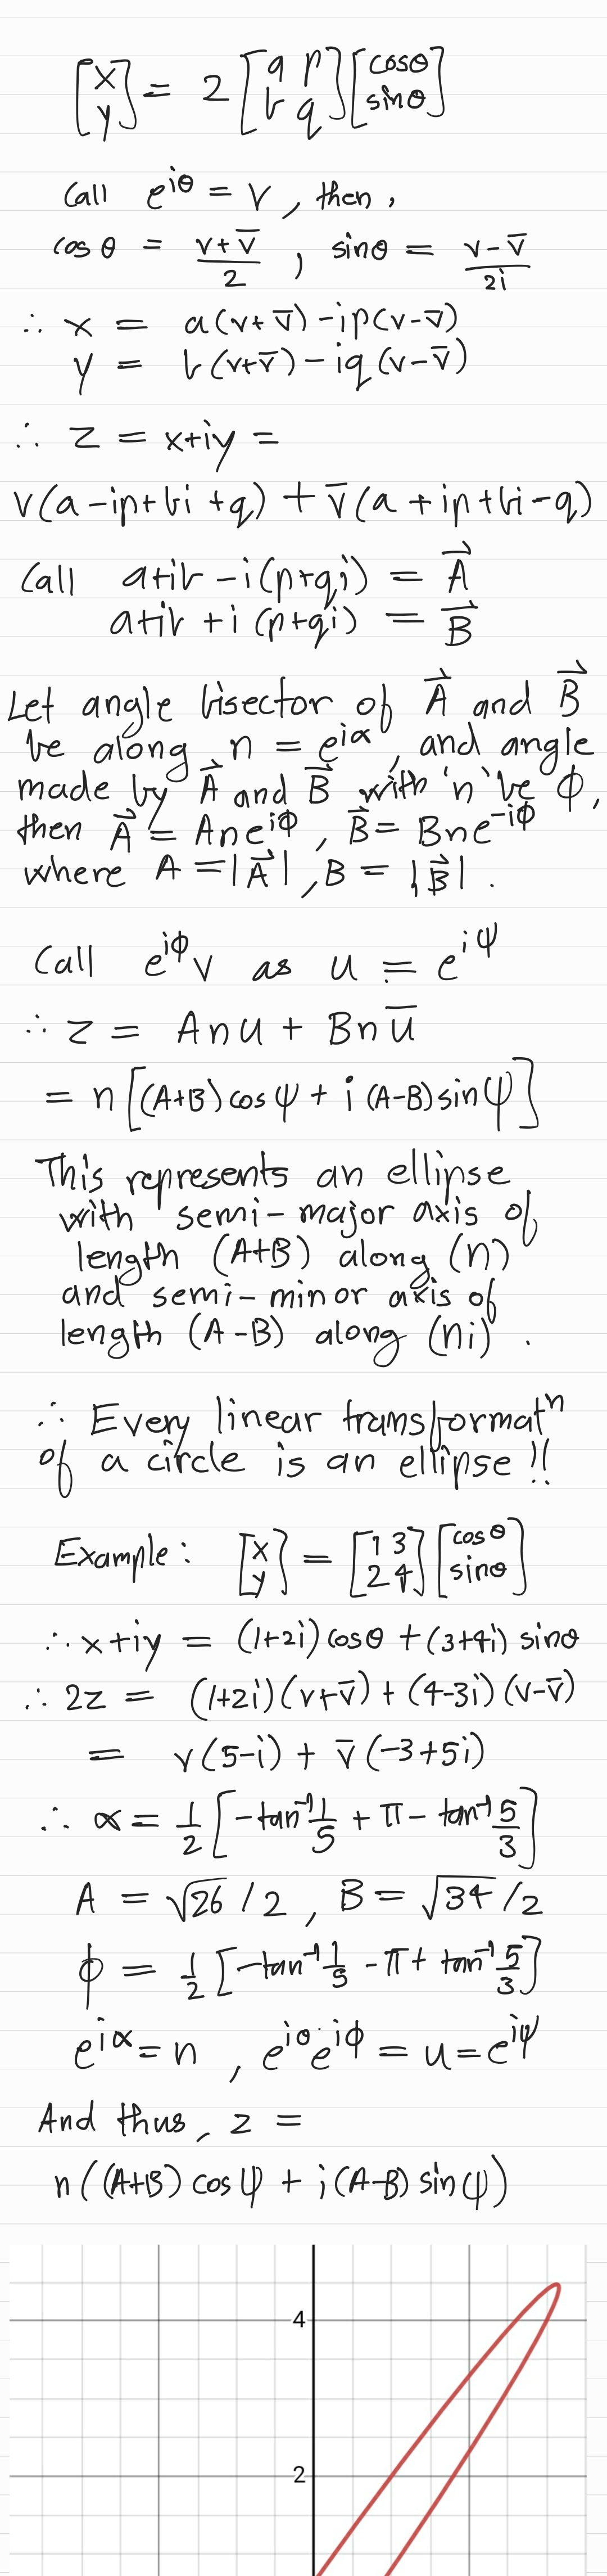 [x y] = 2 [a p b q] [cosθ sinθ]
Call e^{iθ} = v, then,
cos θ = (v+v̅)/2 , sinθ = (v-v̅)/2i
∴ x = a(v+v̅) -ip(v-v̅)
y = b(v+v̅) - iq(v-v̅)
∴ z = x+iy =
v(a-ip+bi+q) + v̅(a+ip+bi-q)
Call a+ib - i(p+qi) = A⃗
a+ib + i(p+qi) = B⃗
Let angle bisector of A⃗ and B⃗
be along n = e^{iα}, and angle
made by A⃗ and B⃗ with 'n' be ϕ,
then A⃗ = Ane^{iϕ}, B⃗ = Bne^{-iϕ}
where A = |A⃗|, B = |B⃗| .
Call e^{iϕ}v as u = e^{iψ}
∴ z = Anu + Bnu̅
= n[(A+B) cos ψ + i (A-B) sin ψ]
This represents an ellipse
with semi-major axis of
length (A+B) along (n)
and semi-minor axis of
length (A-B) along (ni) .
∴ Every linear transformatⁿ
of a circle is an ellipse !!
Example: [x y] = [1 3 2 4] [cosθ sinθ]
∴ x+iy = (1+2i) cosθ + (3+4i) sinθ
∴ 2z = (1+2i)(v+v̅) + (4-3i)(v-v̅)
= v(5-i) + v̅(-3+5i)
∴ α = 1/2 [-tan⁻¹ 1/5 + π - tan⁻¹ 5/3]
A = √26 / 2 , B = √34 / 2
ϕ = 1/2 [-tan⁻¹ 1/5 - π + tan⁻¹ 5/3]
e^{iα} = n , e^{iθ}e^{iϕ} = u = e^{iψ}
And thus, z =
n((A+B) cos ψ + i(A-B) sin ψ)
4
2